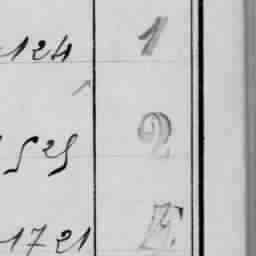 124 1
525 2
1721